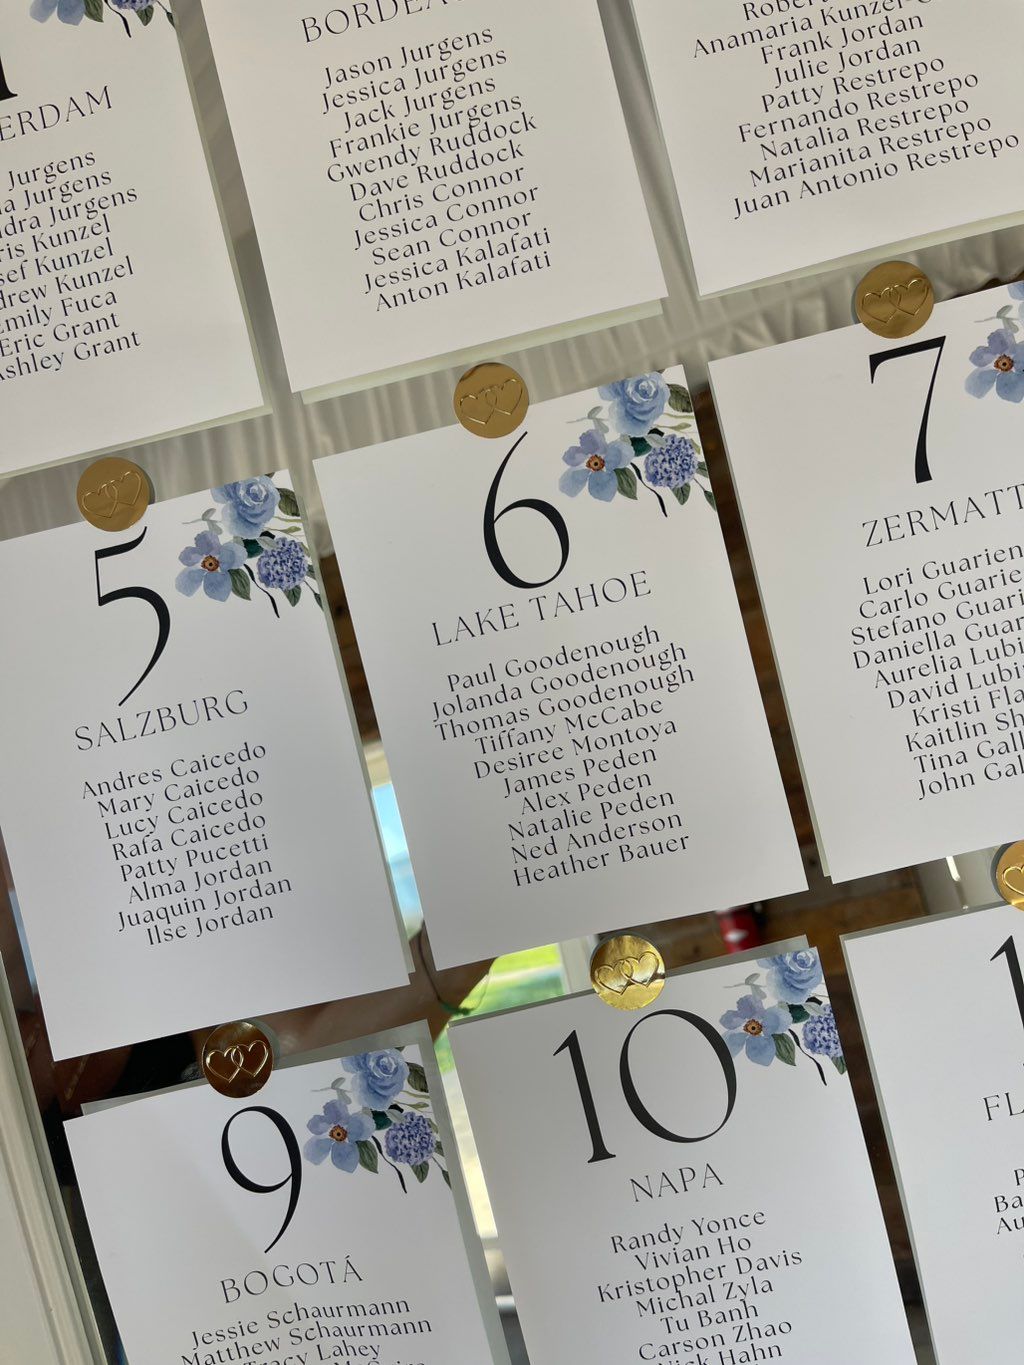 ERDAM
Jurgens
Jurgens
Jurgens
Kunzel
Kunzel
Kunzel
Emily Fuca
Eric Grant
Ashley Grant
Jason Jurgens
Jessica Jurgens
Jack Jurgens
Frankie Jurgens
Gwendy Ruddock
Dave Ruddock
Chris Connor
Jessica Connor
Sean Connor
Jessica Kalafati
Anton Kalafati
Anamaria
Frank Jordan
Julie Jordan
Patty Restrepo
Fernando Restrepo
Natalia Restrepo
Marianita Restrepo
Juan Antonio Restrepo
5
SALZBURG
Andres Caicedo
Mary Caicedo
Lucy Caicedo
Rafa Caicedo
Patty Pucetti
Alma Jordan
Juaquin Jordan
Ilse Jordan
6
LAKE TAHOE
Paul Goodenough
Jolanda Goodenough
Thomas Goodenough
Tiffany McCabe
Desiree Montoya
James Peden
Alex Peden
Natalie Peden
Ned Anderson
Heather Bauer
7
ZERMATT
Lori Guarien
Carlo Guarie
Stefano Guari
Daniella Guar
Aurelia Lubi
David Lubi
Kristi Fla
Kaitlin Sh
Tina Gall
John Gal
9
BOGOTÁ
Jessie Schaurmann
Matthew Schaurmann
Tracy Lahey
10
NAPA
Randy Yonce
Vivian Ho
Kristopher Davis
Michal Zyla
Tu Banh
Carson Zhao
Nick Hahn
1
FL
P
Ba
Au